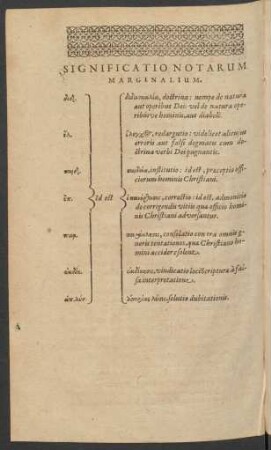 SIGNIFICATIO NOTARUM
MARGINALIUM.
διδ. διδασκαλία, doctrina: nempe de natura
aut operibus Dei: vel de natura ope-
ribúsve hominis, aut diaboli.
ἔλ. ἔλεγχος, redargutio: videlicet alicuius
erroris aut falsi dogmatis cum do-
ctrina verbi Dei pugnantis.
παιδ. παιδεία, institutio: id est, præceptio offi-
ciorum hominis Christiani.
ἐπ. id est ἐπανόρθωσις, correctio: id est, admonitio
de corrigendis vitiis quæ officio homi-
nis Christiani adversantur.
παρ. παράκλησις, consolatio contra omnis ge-
neris tentationes, quæ Christiano ho-
mini accidere solent.
ἐκδίκησις, vindicatio loci scripturæ à fal-
sa interpretatione.
solutio dubitationis.